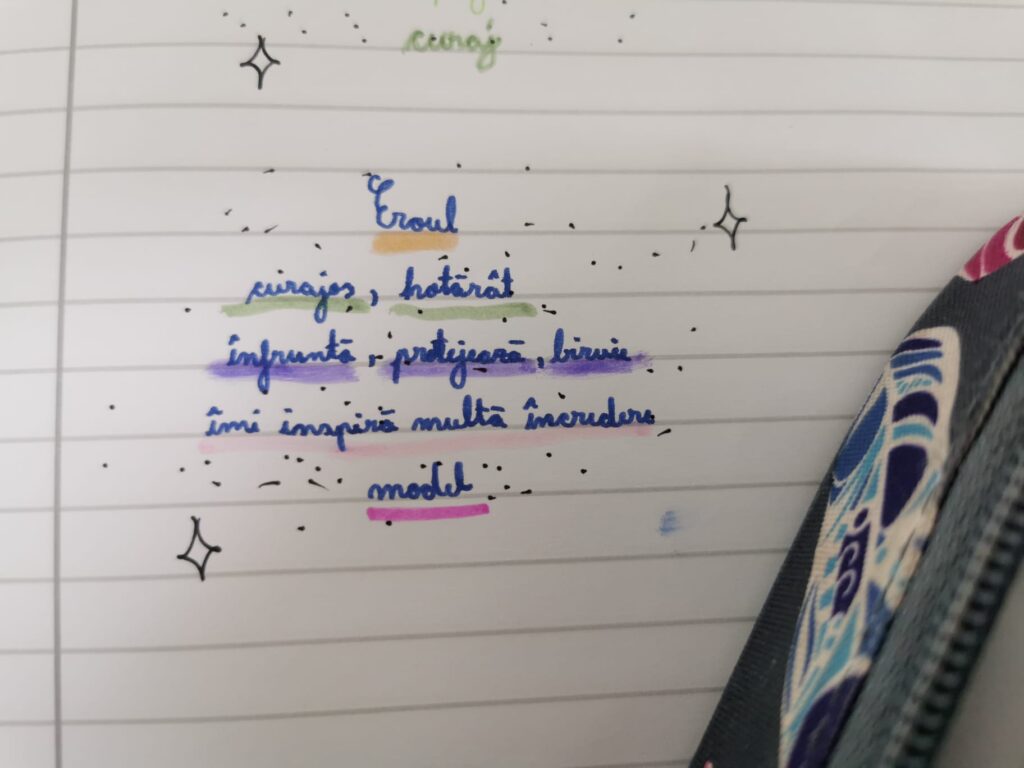 curaj
Eroul
curajos, hotărât
înfruntă, protejează, biruie
îmi inspiră multă încredere
model